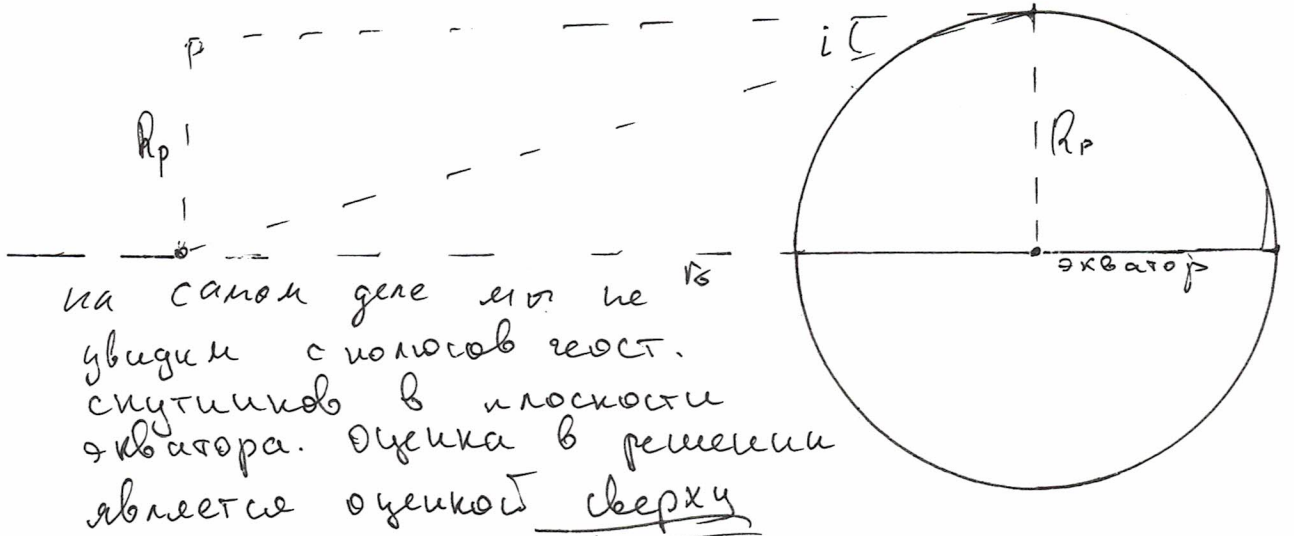 P
i
Rр
Rр
экватор
r₀
на самом деле мы не
увидим с полюсов геост.
спутников в плоскости
экватора. Оценка в решении
является оценкой сверху